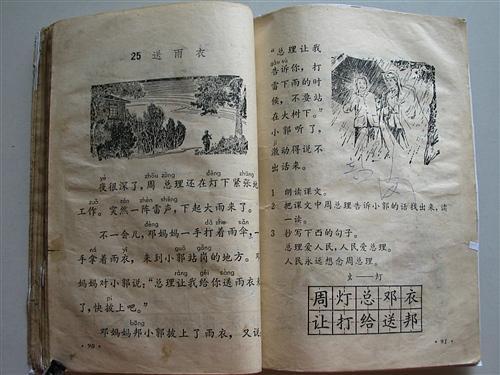 25 送 雨 衣
yè zhōu zǒng dēng zhāng
夜很深了，周 总理还在灯下紧张地
zuò zhèn shēng
工作。突然一阵雷声，下起大雨来了。
不一会儿，邓妈妈一手打着雨伞，一
ná yī guō gǎng
手拿着雨衣，来到小郭站岗的地方。邓
ràng gěi sòng
妈妈对小郭说：“总理让我给你送雨衣
pī
了，快披上吧。”
bāng
邓妈妈帮小郭披上了雨衣，又说
· 90 ·
“总理让我
gào sù
告诉你，打
雷下雨的时
候，不要站
在大树下。”
小郭听了，
激动得说不
出话来。
1 朗读课文。
2 把课文中周总理告诉小郭的话找出来，读
一读。
3 抄写下西的句子。
总理爱人民，人民爱总理。
人民永远想念周总理。
周 灯 总 邓 衣
让 打 给 送 邦
· 91 ·